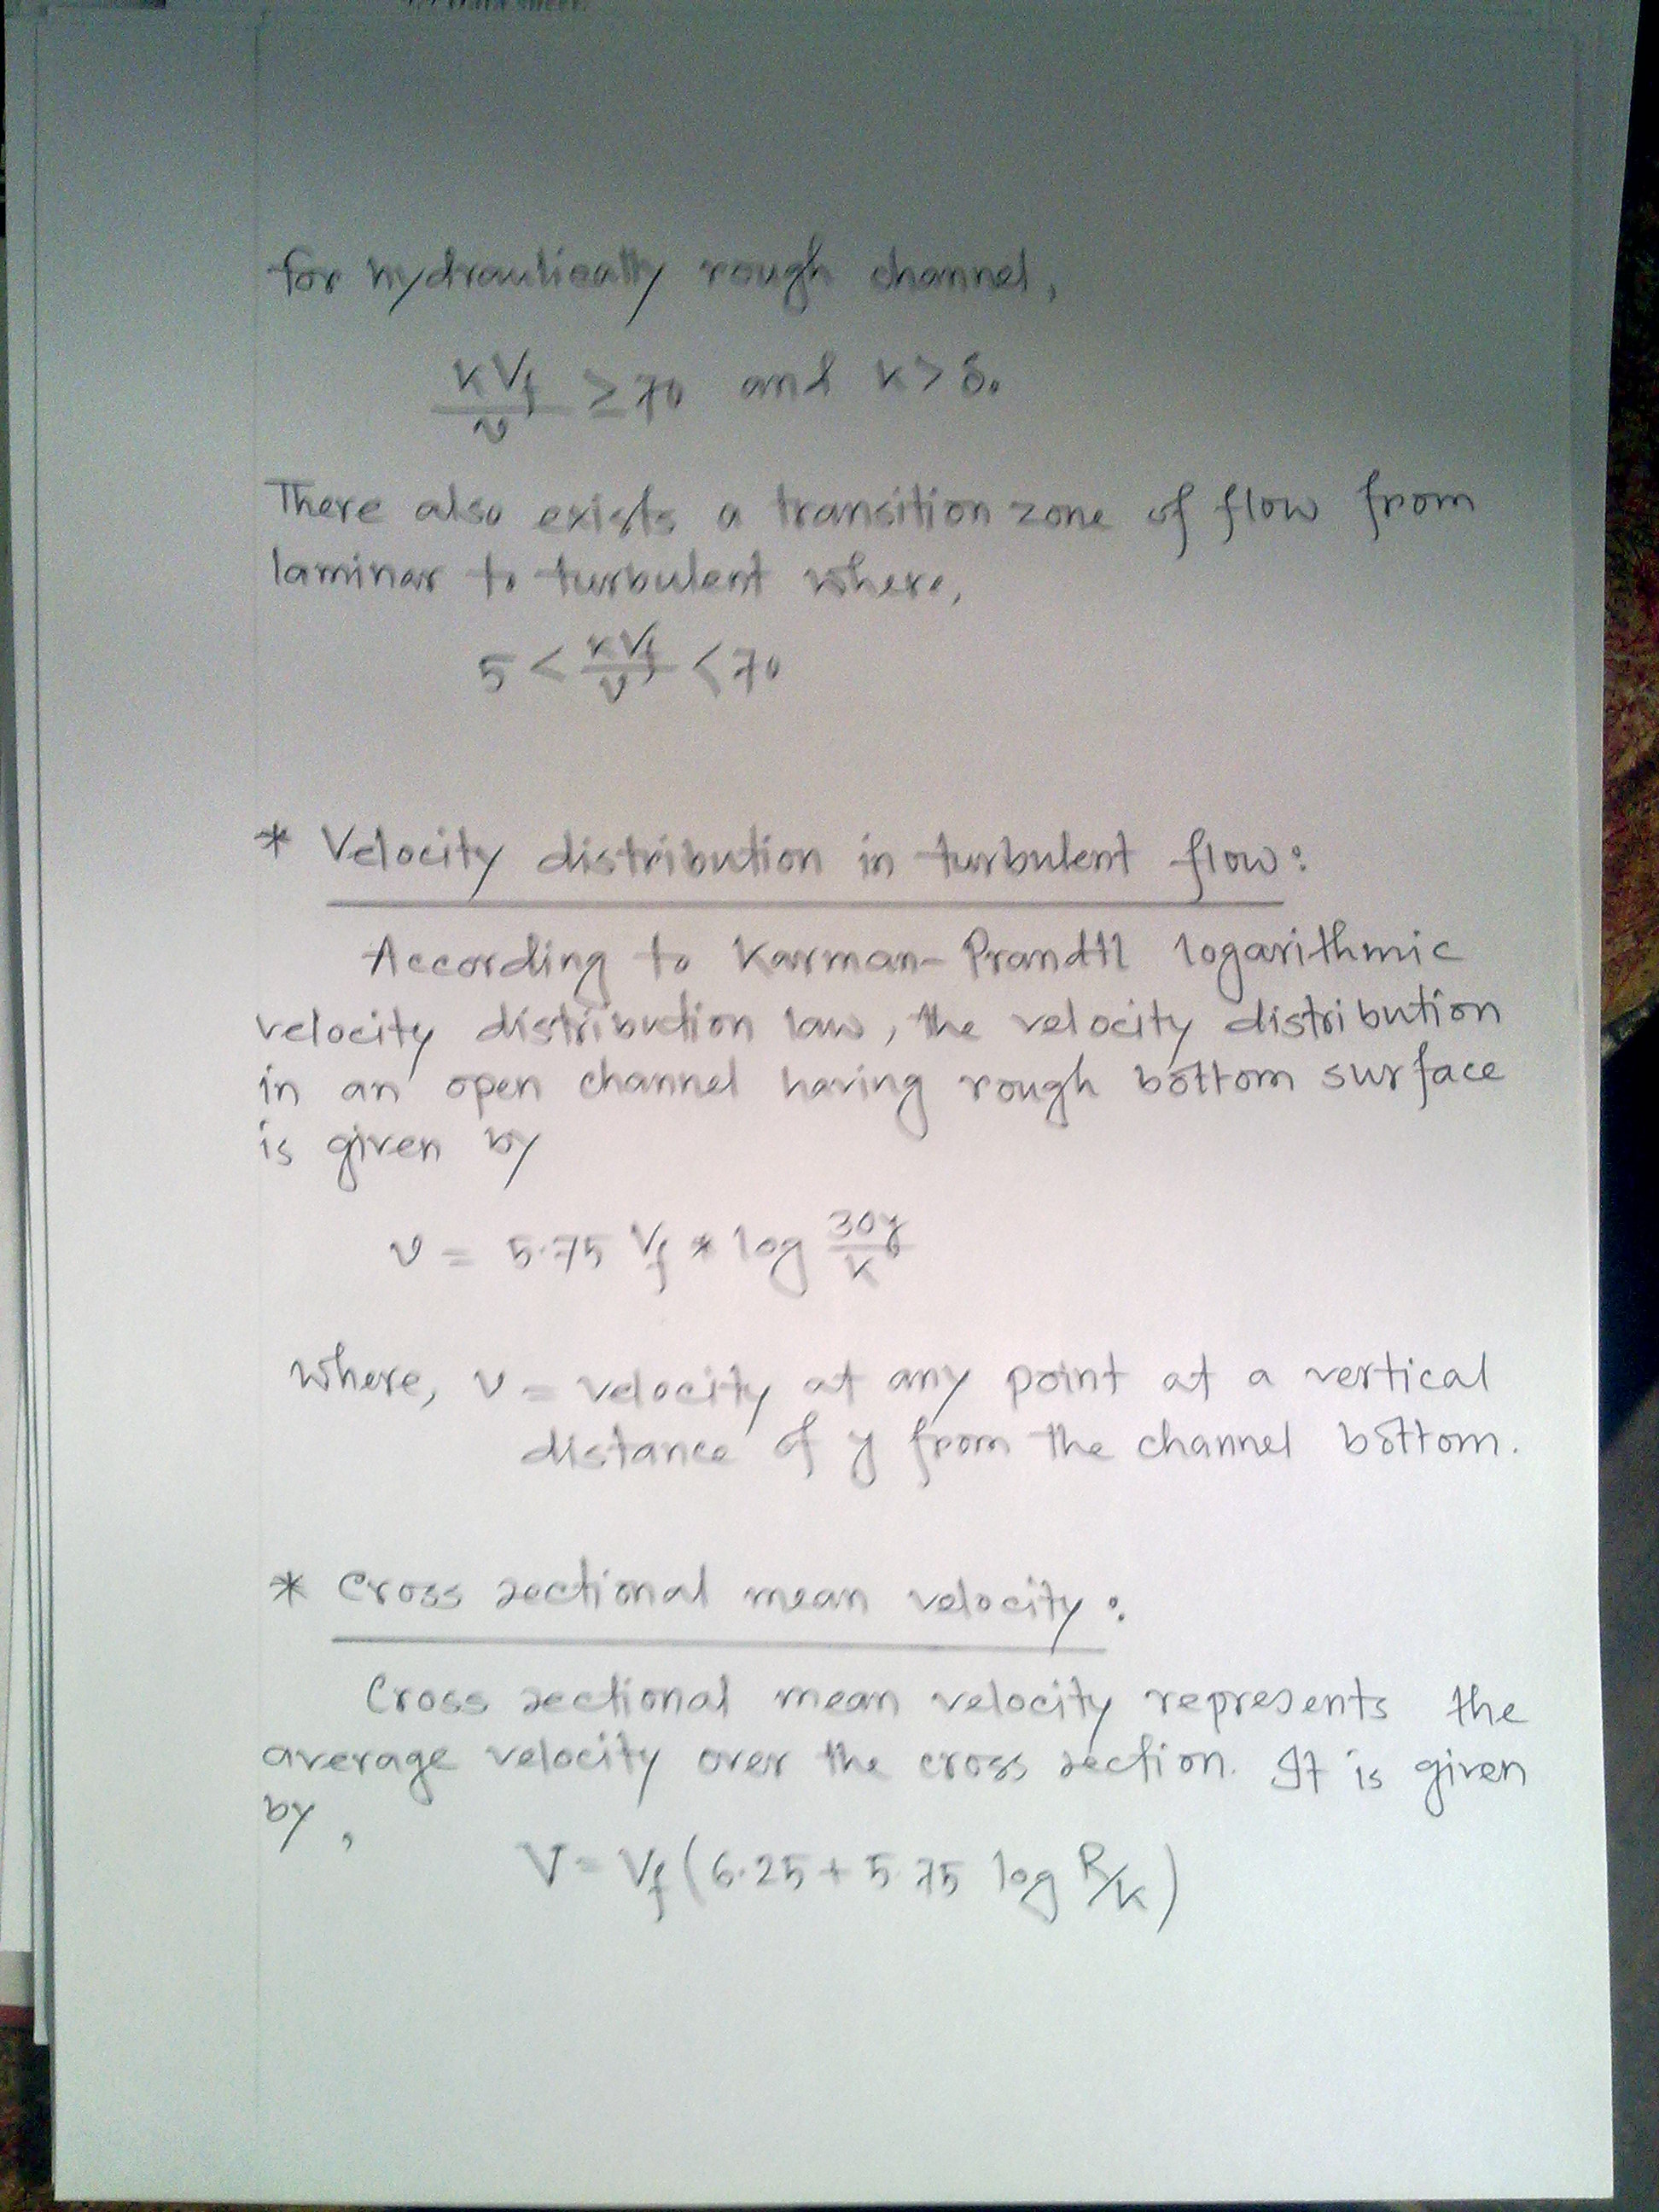 for hydraulically rough channel,
kVf/ν ≥ 70 and k > δ₀
There also exists a transition zone of flow from
laminar to turbulent where,
5 < kVf/ν < 70
* Velocity distribution in turbulent flow:
According to Karman-Prandtl logarithmic
velocity distribution law, the velocity distribution
in an open channel having rough bottom surface
is given by
v = 5.75 Vf * log 30y/k
where, v = velocity at any point at a vertical
distance of y from the channel bottom.
* Cross sectional mean velocity:
Cross sectional mean velocity represents the
average velocity over the cross section. It is given
by,
V = Vf (6.25 + 5.75 log R/k)